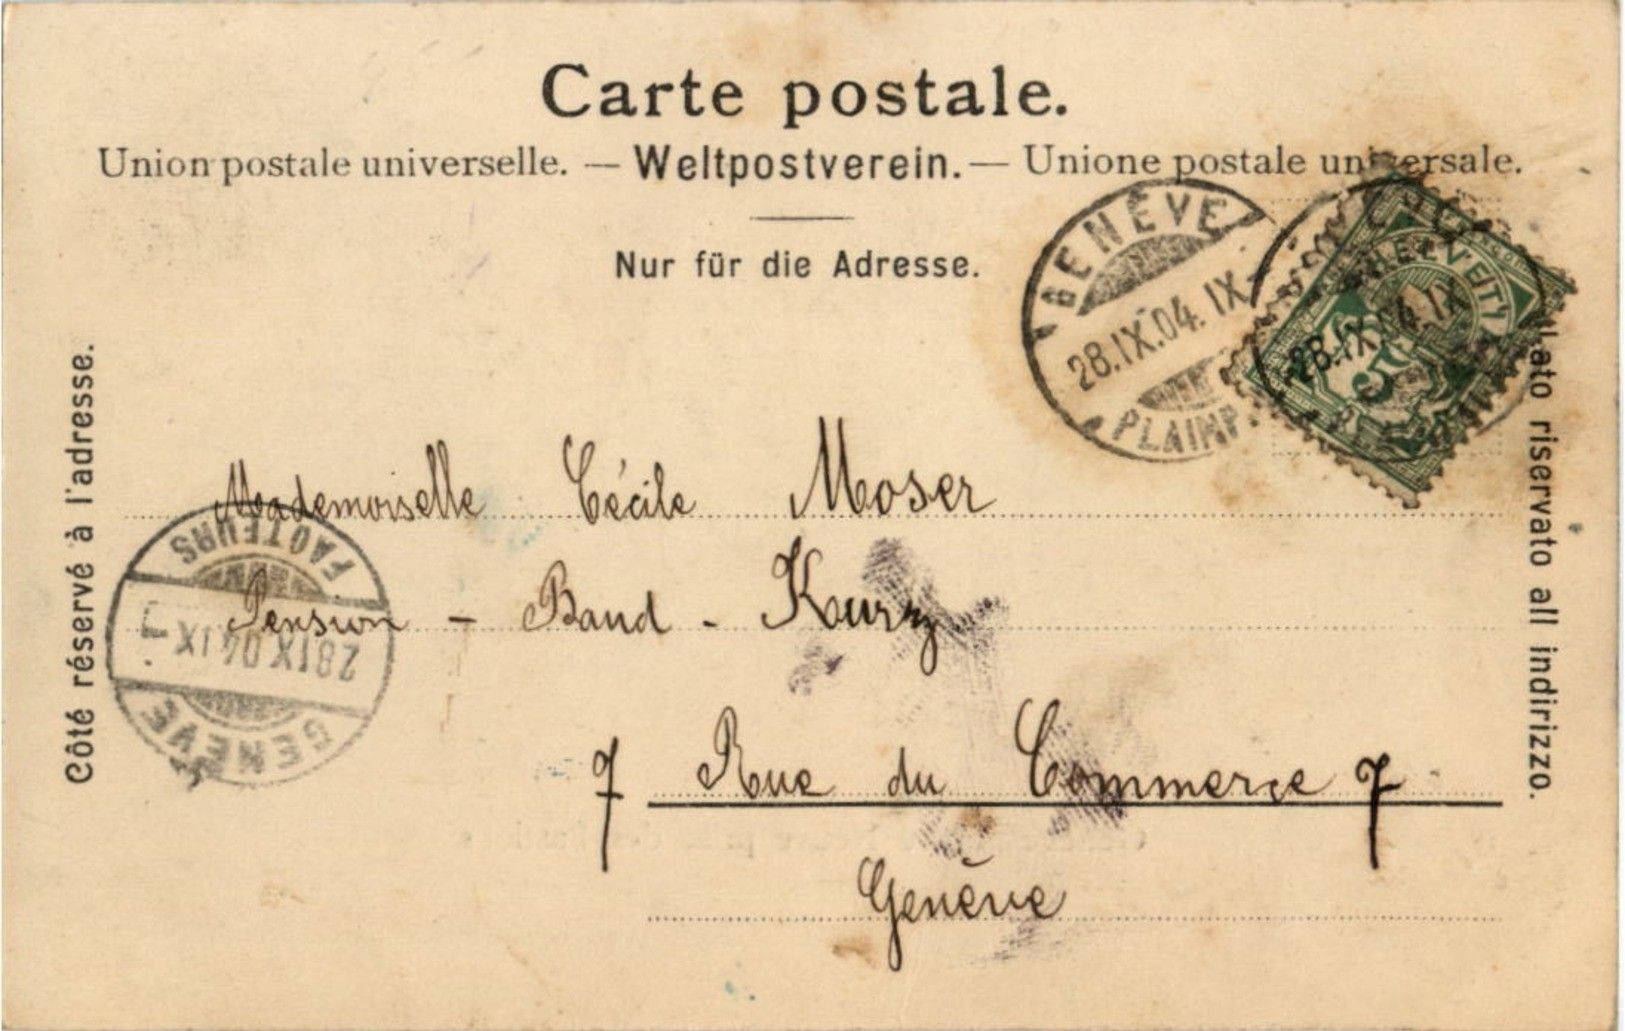 Carte postale.
Union postale universelle. — Weltpostverein. — Unione postale universale.
Nur für die Adresse.
Côté réservé à l'adresse.
Lato riservato all indirizzo.
GENÈVE
28.IX.04. IX
PLAINP.
HELVETIA
28.IX.04.IX
5
Mademoiselle Cécile Moser
Pension - Baud - Kurz
7 Rue du Commerce 7
Genève
FACTEURS
28 IX 04 IX
GENÈVE